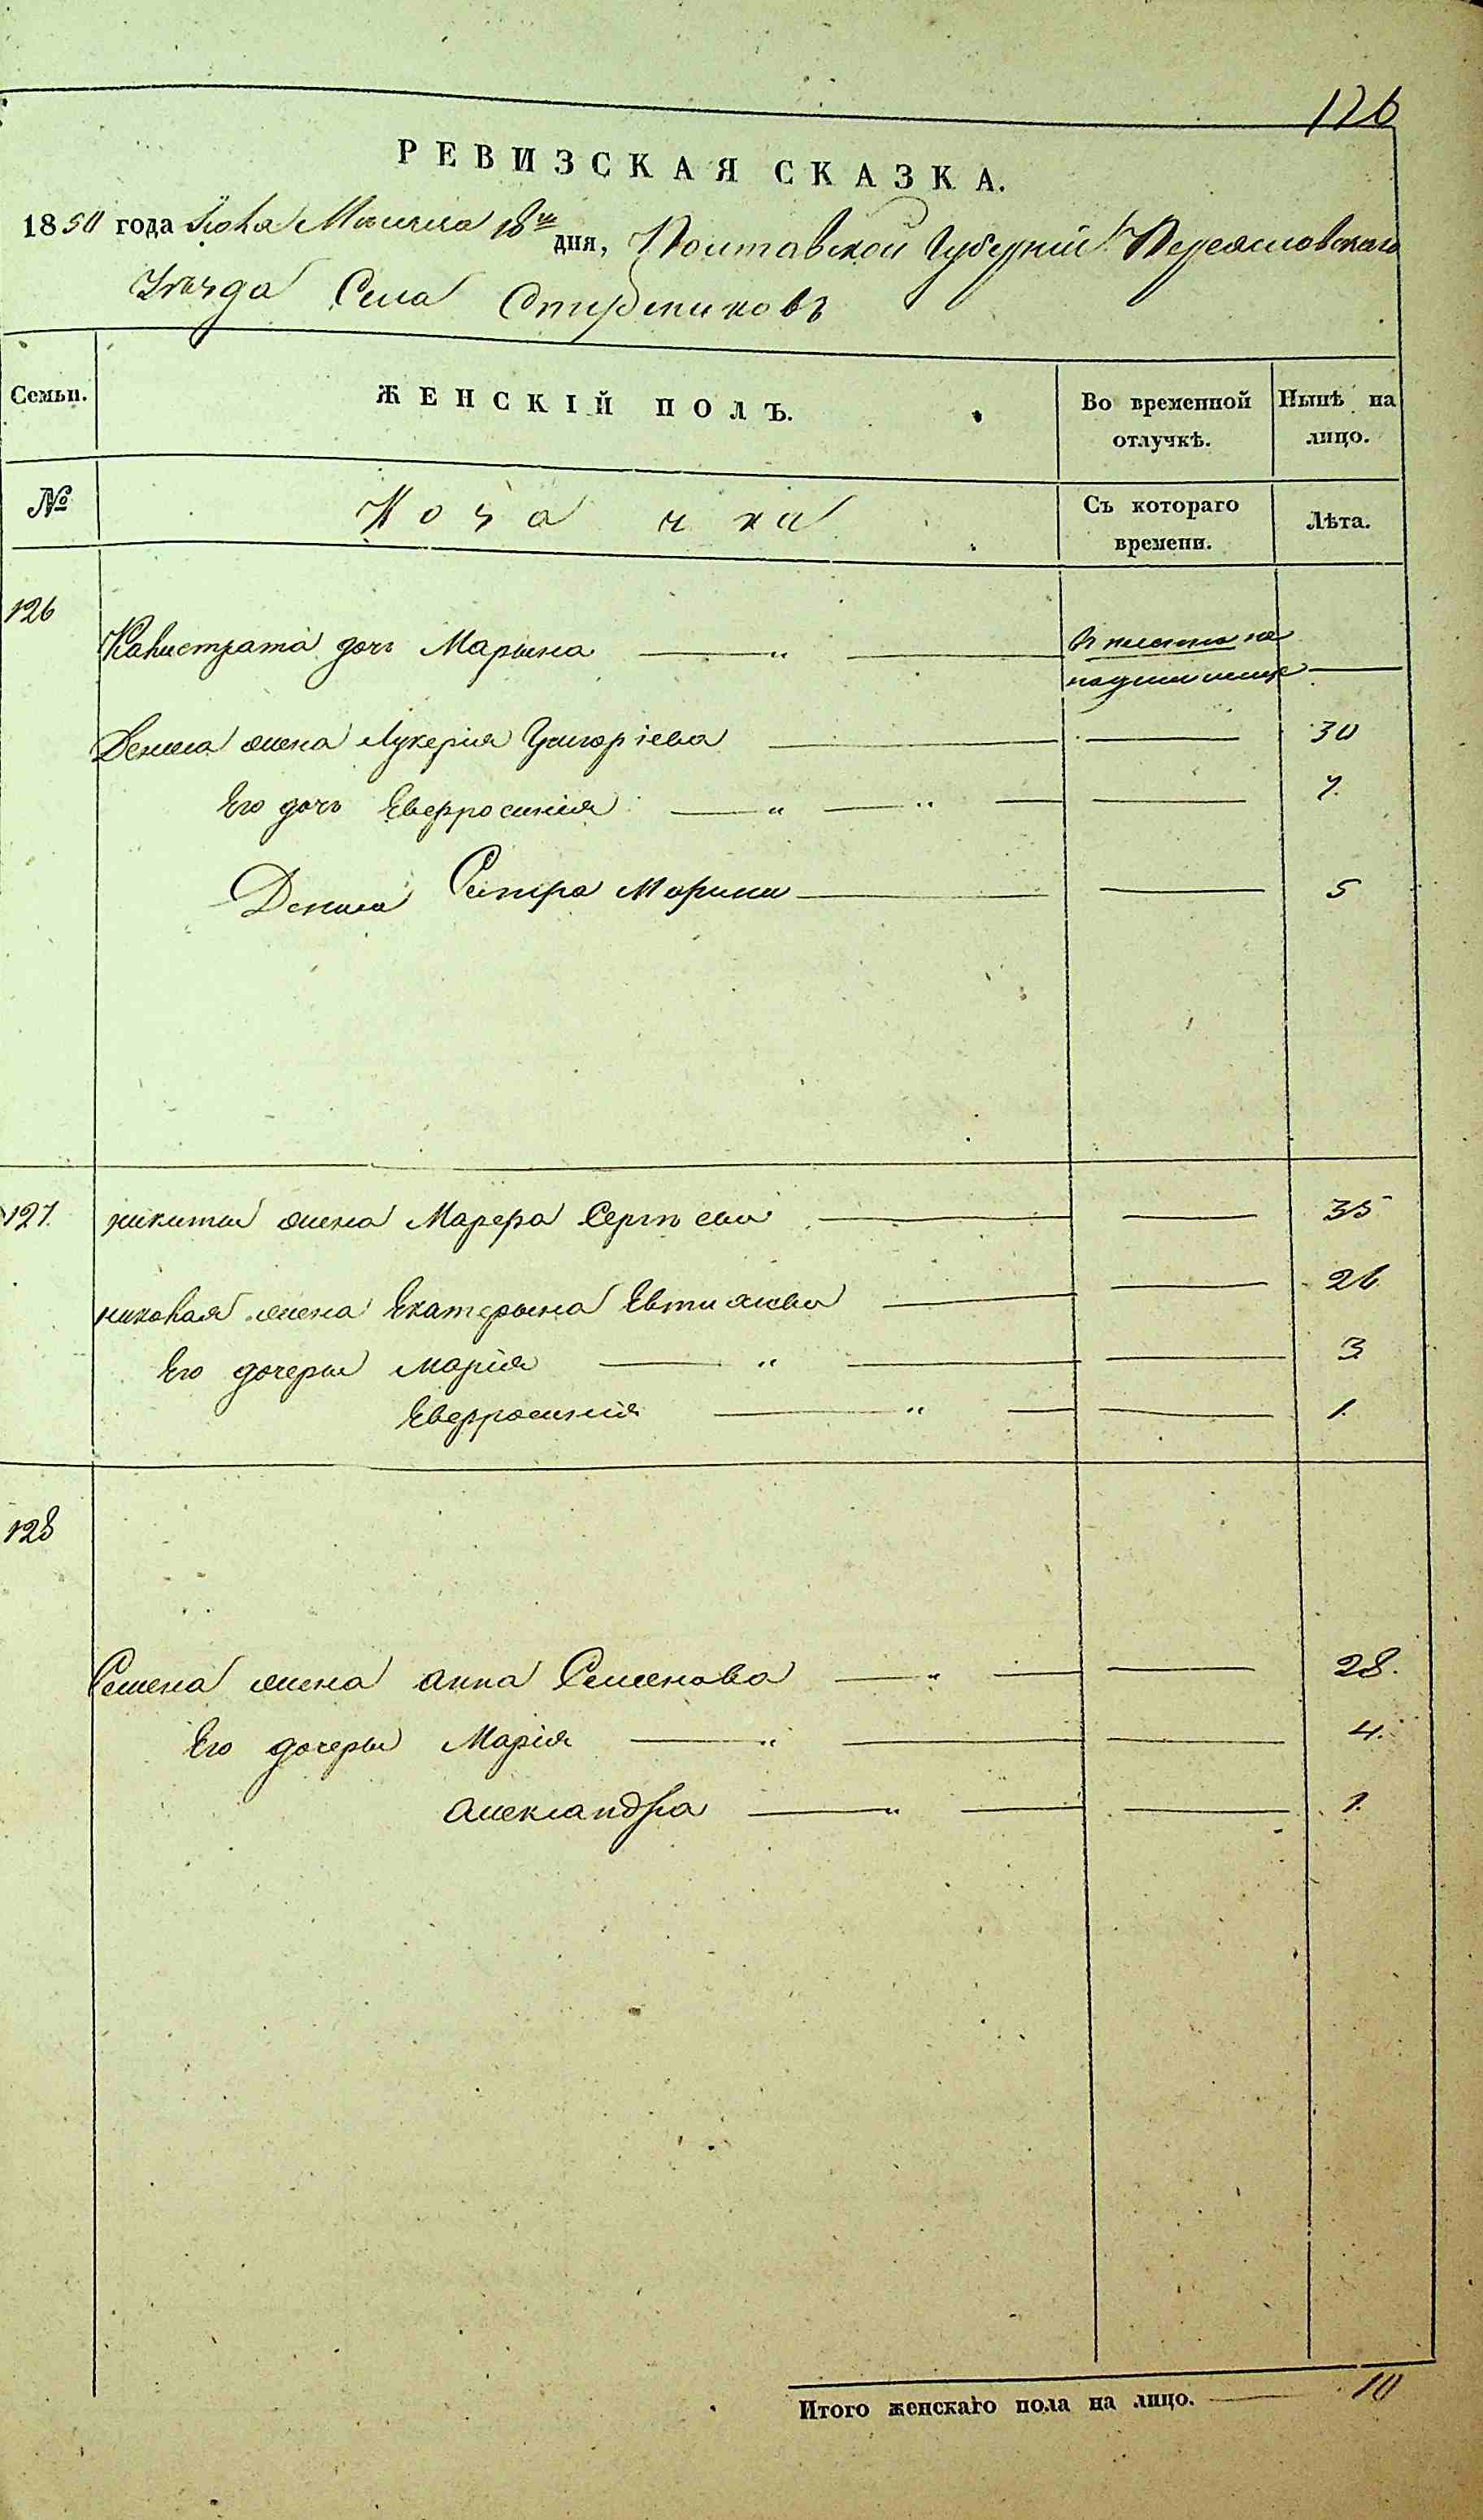 126
РЕВИЗСКАЯ СКАЗКА.
1850 года Июля Месяца 18го дня, Полтавской Губерніи Переяславского
Уезда Села Стрбениковъ
Семьи. ЖЕНСКІЙ ПОЛЪ. Во временной отлучкѣ. Нынѣ на лицо.
№ Козачки Съ котораго времени. Лѣта.
126
Калистрата дочь Марына
Дениса жена Лукерія Григоріева 30
Его дочь Евфросинія 7.
Дениса Сестра Марина 5
127. Никиты жена Марфа Сергѣева 35
Николая жена Екатерына Евтихіева 26
Его дочеры Марія 3
Евфросинія 1.
128
Семена жена Анна Семенова 28.
Его дочеры Марія 4.
Александра 1.
Итого женскаго пола на лицо. 10